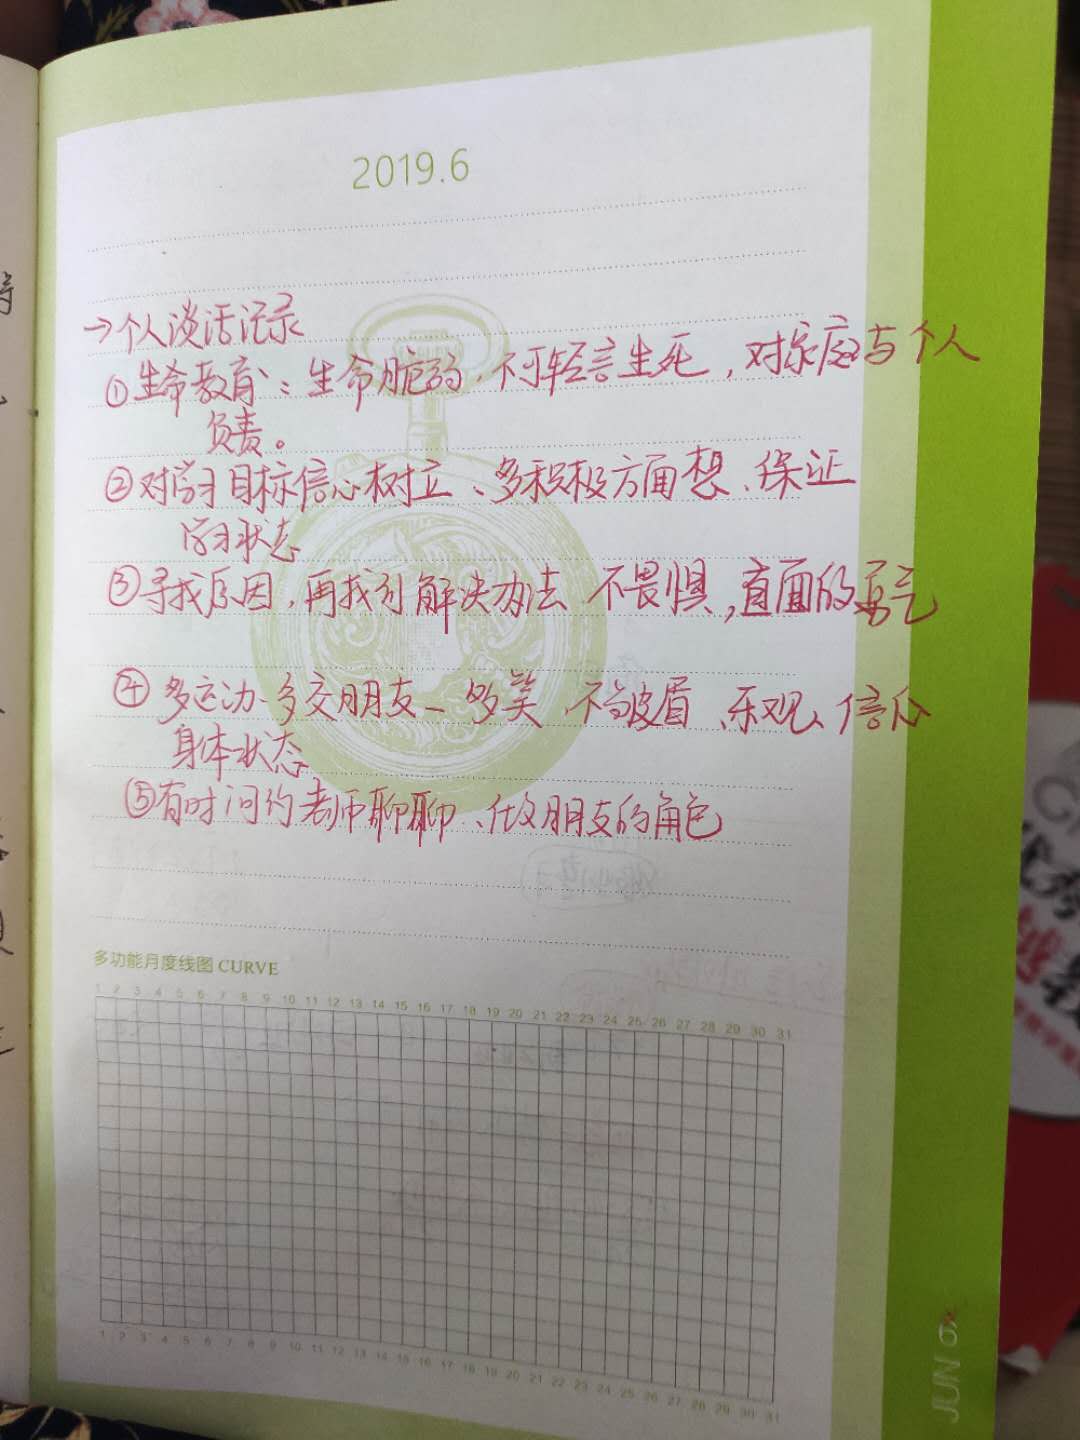 2019.6
→个人谈话记录
①生命教育：生命脆弱、不可轻言生死，对家庭与个人
负责。
②对学习目标信心树立、多积极方面想、保证
学习状态
③寻找原因，再找到解决办法 不畏惧，直面的勇气
④多运动、多交朋友、多笑 不皱眉、乐观、信心
身体状态
⑤有时间约老师聊聊、做朋友的角色
多功能月度线图 CURVE
1 2 3 4 5 6 7 8 9 10 11 12 13 14 15 16 17 18 19 20 21 22 23 24 25 26 27 28 29 30 31
1 2 3 4 5 6 7 8 9 10 11 12 13 14 15 16 17 18 19 20 21 22 23 24 25 26 27 28 29 30 31
JUN